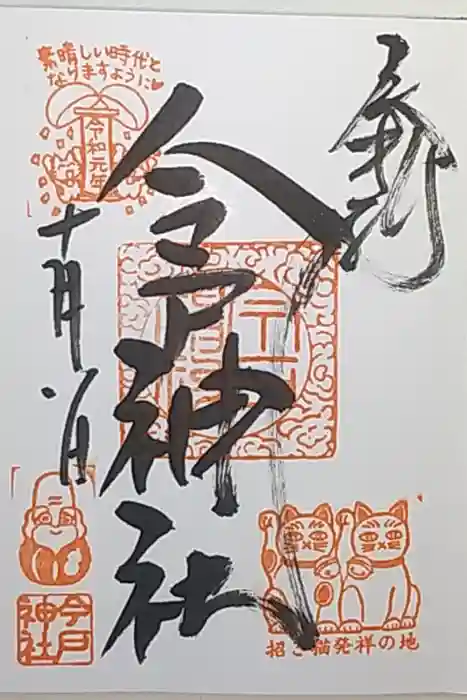 奉拝
今戸神社
素晴しい時代と
なりますように
令和元年
十月八日
今戸
神社
招き猫発祥の地